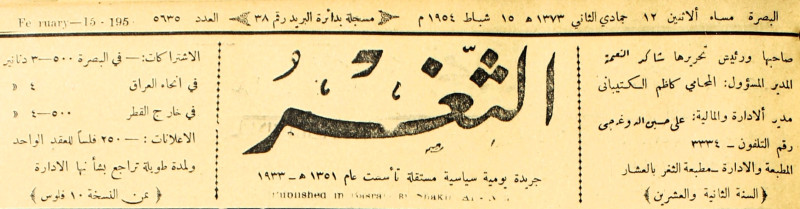 البصرة مساء ألاثنين ١٢ جمادي الثاني ١٣٧٣ هـ ١٥ شباط ١٩٥٤ م
مسجلة بدائرة البريد رقم ٣٨
العدد ٥٦٣٥
February—15-195
صاحبها ورئيس تحريرها شاكر النعمة
المدير المسؤول: المحامي كاظم الكتيباني
مدير ألادارة والمالية: علي حسين
رقم التلفون — ٣٣٣٤
المطبعة والادارة — مطبعة الثغر بالعشار
﴿ السنة الثانية والعشرين ﴾
الثغر
جريدة يومية سياسية مستقلة تأسست عام ١٣٥١ هـ — ١٩٣٣
Published in Basrah
الاشتراكات: — في البصرة ٥٠٠—٣ دنانير
في انحاء العراق ٤ «
في خارج القطر ٥٠٠—٤ «
الاعلانات: — ٢٥٠ فلساً للعقد الواحد
ولمدة طويلة تراجع بشأنها الادارة
﴿ ثمن النسخة ١٠ فلوس ﴾